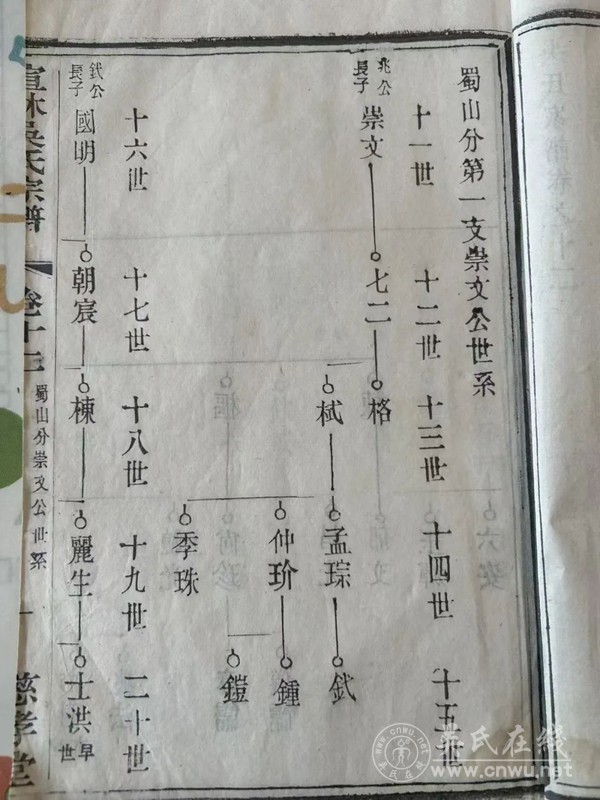 蜀山分第一支崇文公世系
十一世 十二世 十三世 十四世 十五世
兆公長子 崇文 七二 格
栻 孟琮 鉽
仲玠 鍾
鎧
季珠
十六世 十七世 十八世 十九世 二十世
鉽公長子 國明 朝宸 棟 麗生 士洪 早世
宜林吳氏宗譜 卷十二 蜀山分崇文公世系 一 慈孝堂
吴氏在线
www.cnwu.net